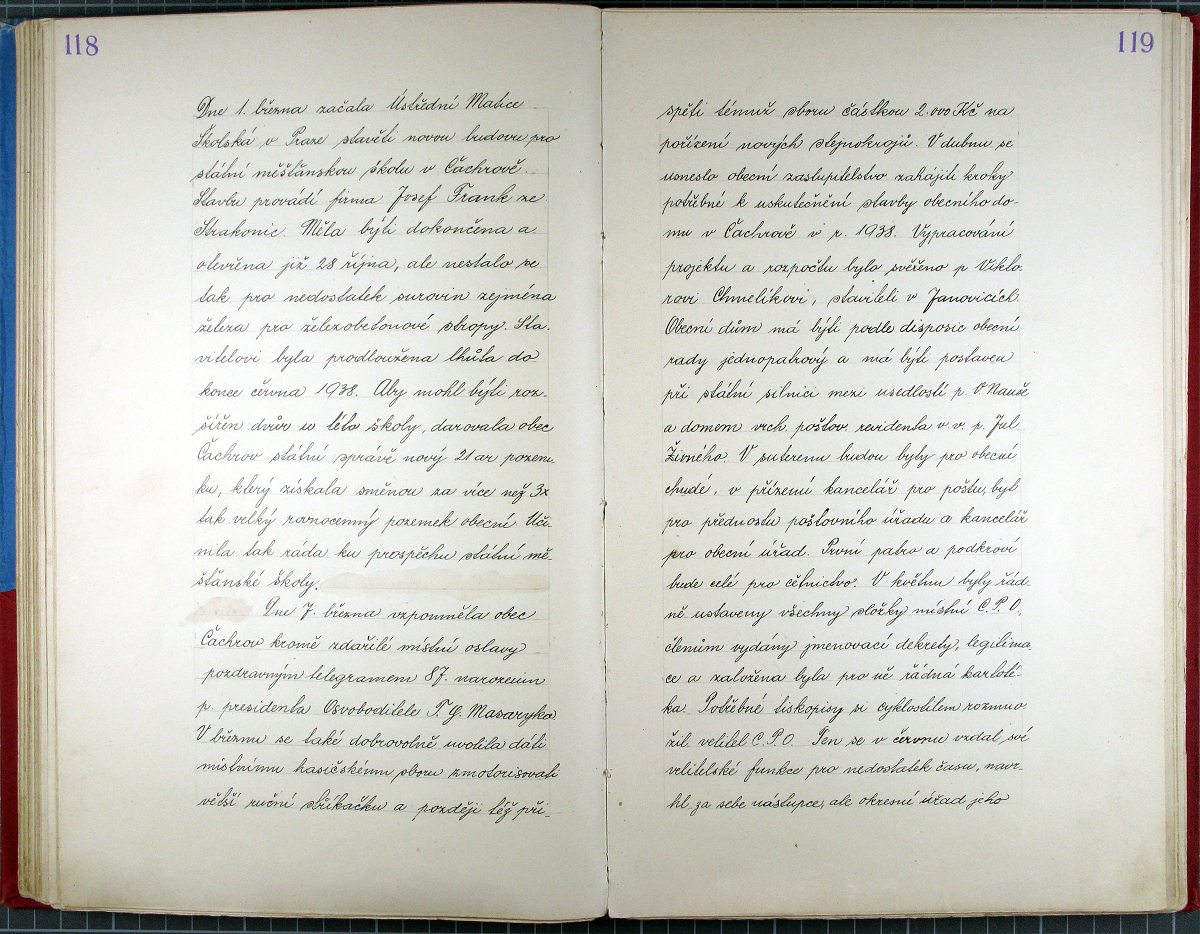 118
Dne 1. března začala Ústřední Matice
Školská v Praze stavěti novou budovu pro
státní měšťanskou školu v Čachrově.
Stavbu provádí firma Josef Frank ze
Strakonic. Měla býti dokončena a
otevřena již 28 října, ale nestalo se
tak pro nedostatek surovin zejména
železa pro železobetonové stropy. Sta-
vitelovi byla prodloužena lhůta do
konce června 1938. Aby mohl býti roz-
šířen dvůr u této školy, darovala obec
Čachrov státní správě nový 21 ar pozem-
ku, který získala směnou za více než 3x
tak velký rovnocenný pozemek obecní. Uči-
nila tak ráda ku prospěchu státní mě-
šťanské školy.
Dne 7. března vzpomněla obec
Čachrov kromě zdařilé místní oslavy
pozdravným telegramem 87. narozenin
p. presidenta Osvoboditele T. G. Masaryka.
V březnu se také dobrovolně uvolila dáti
místnímu hasičskému sboru zmotorisovati
větší ruční stříkačku a později též při-
119
spěti témuž sboru částkou 2.000 Kč na
pořízení nových stejnokrojů. V dubnu se
usneslo obecní zastupitelstvo zahájiti kroky
potřebné k uskutečnění stavby obecního do-
mu v Čachrově v r. 1938. Vypracování
projektu a rozpočtu bylo svěřeno p Vikto-
rovi Chmelíkovi, staviteli v Janovicích.
Obecní dům má býti podle disposic obecní
rady jednopatrový a má býti postaven
při státní silnici mezi usedlostí p. V Nauše
a domem vrch. poštov revidenta v v. p. Jul.
Živného. V suterenu budou byty pro obecní
chudé, v přízemí kancelář pro poštu, byt
pro přednostu poštovního úřadu a kancelář
pro obecní úřad. První patro a podkroví
bude celé pro četnictvo. V květnu byly řád-
ně ustaveny všechny složky místní C. P. O.,
členům vydány jmenovací dekrety, legitima-
ce a založena byla pro ně řádná kartoté-
ka. Potřebné tiskopisy si cyklostilem rozmno-
žil velitel C. P. O. Ten se v červnu vzdal své
velitelské funkce pro nedostatek času, navr-
hl za sebe nástupce, ale okresní úřad jeho